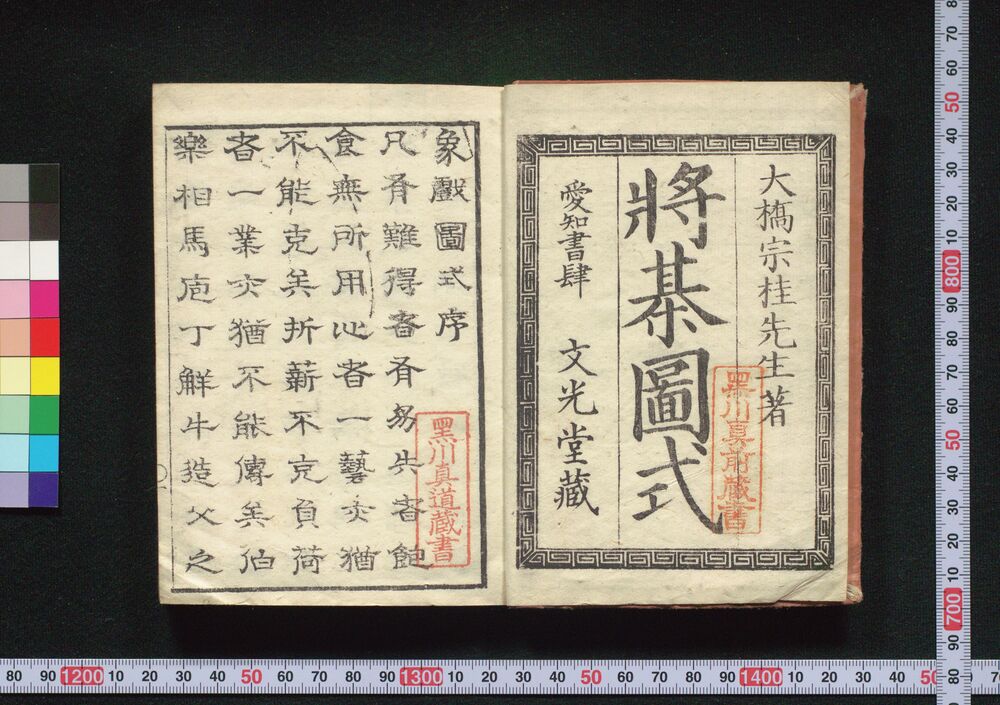 大橋宗桂先生著
將棊圖式
愛知書肆 文光堂藏
黑川真前蔵書
象戲圖式序
凡有難得者有易失者飽
食無所用心者一藝亦猶
不能克矣折薪不克負荷
者一業亦猶不能傳矣伯
樂相馬庖丁解牛造父之
黑川真道蔵書
80 90 1200 10 20 30 40 50 60 70 80 90 1300 10 20 30 40 50 60 70 80 90 1400 10 20 30 40
70 60 50 40 30 20 10 800 90 80 70 60 50 40 30 20 10 700 90 80